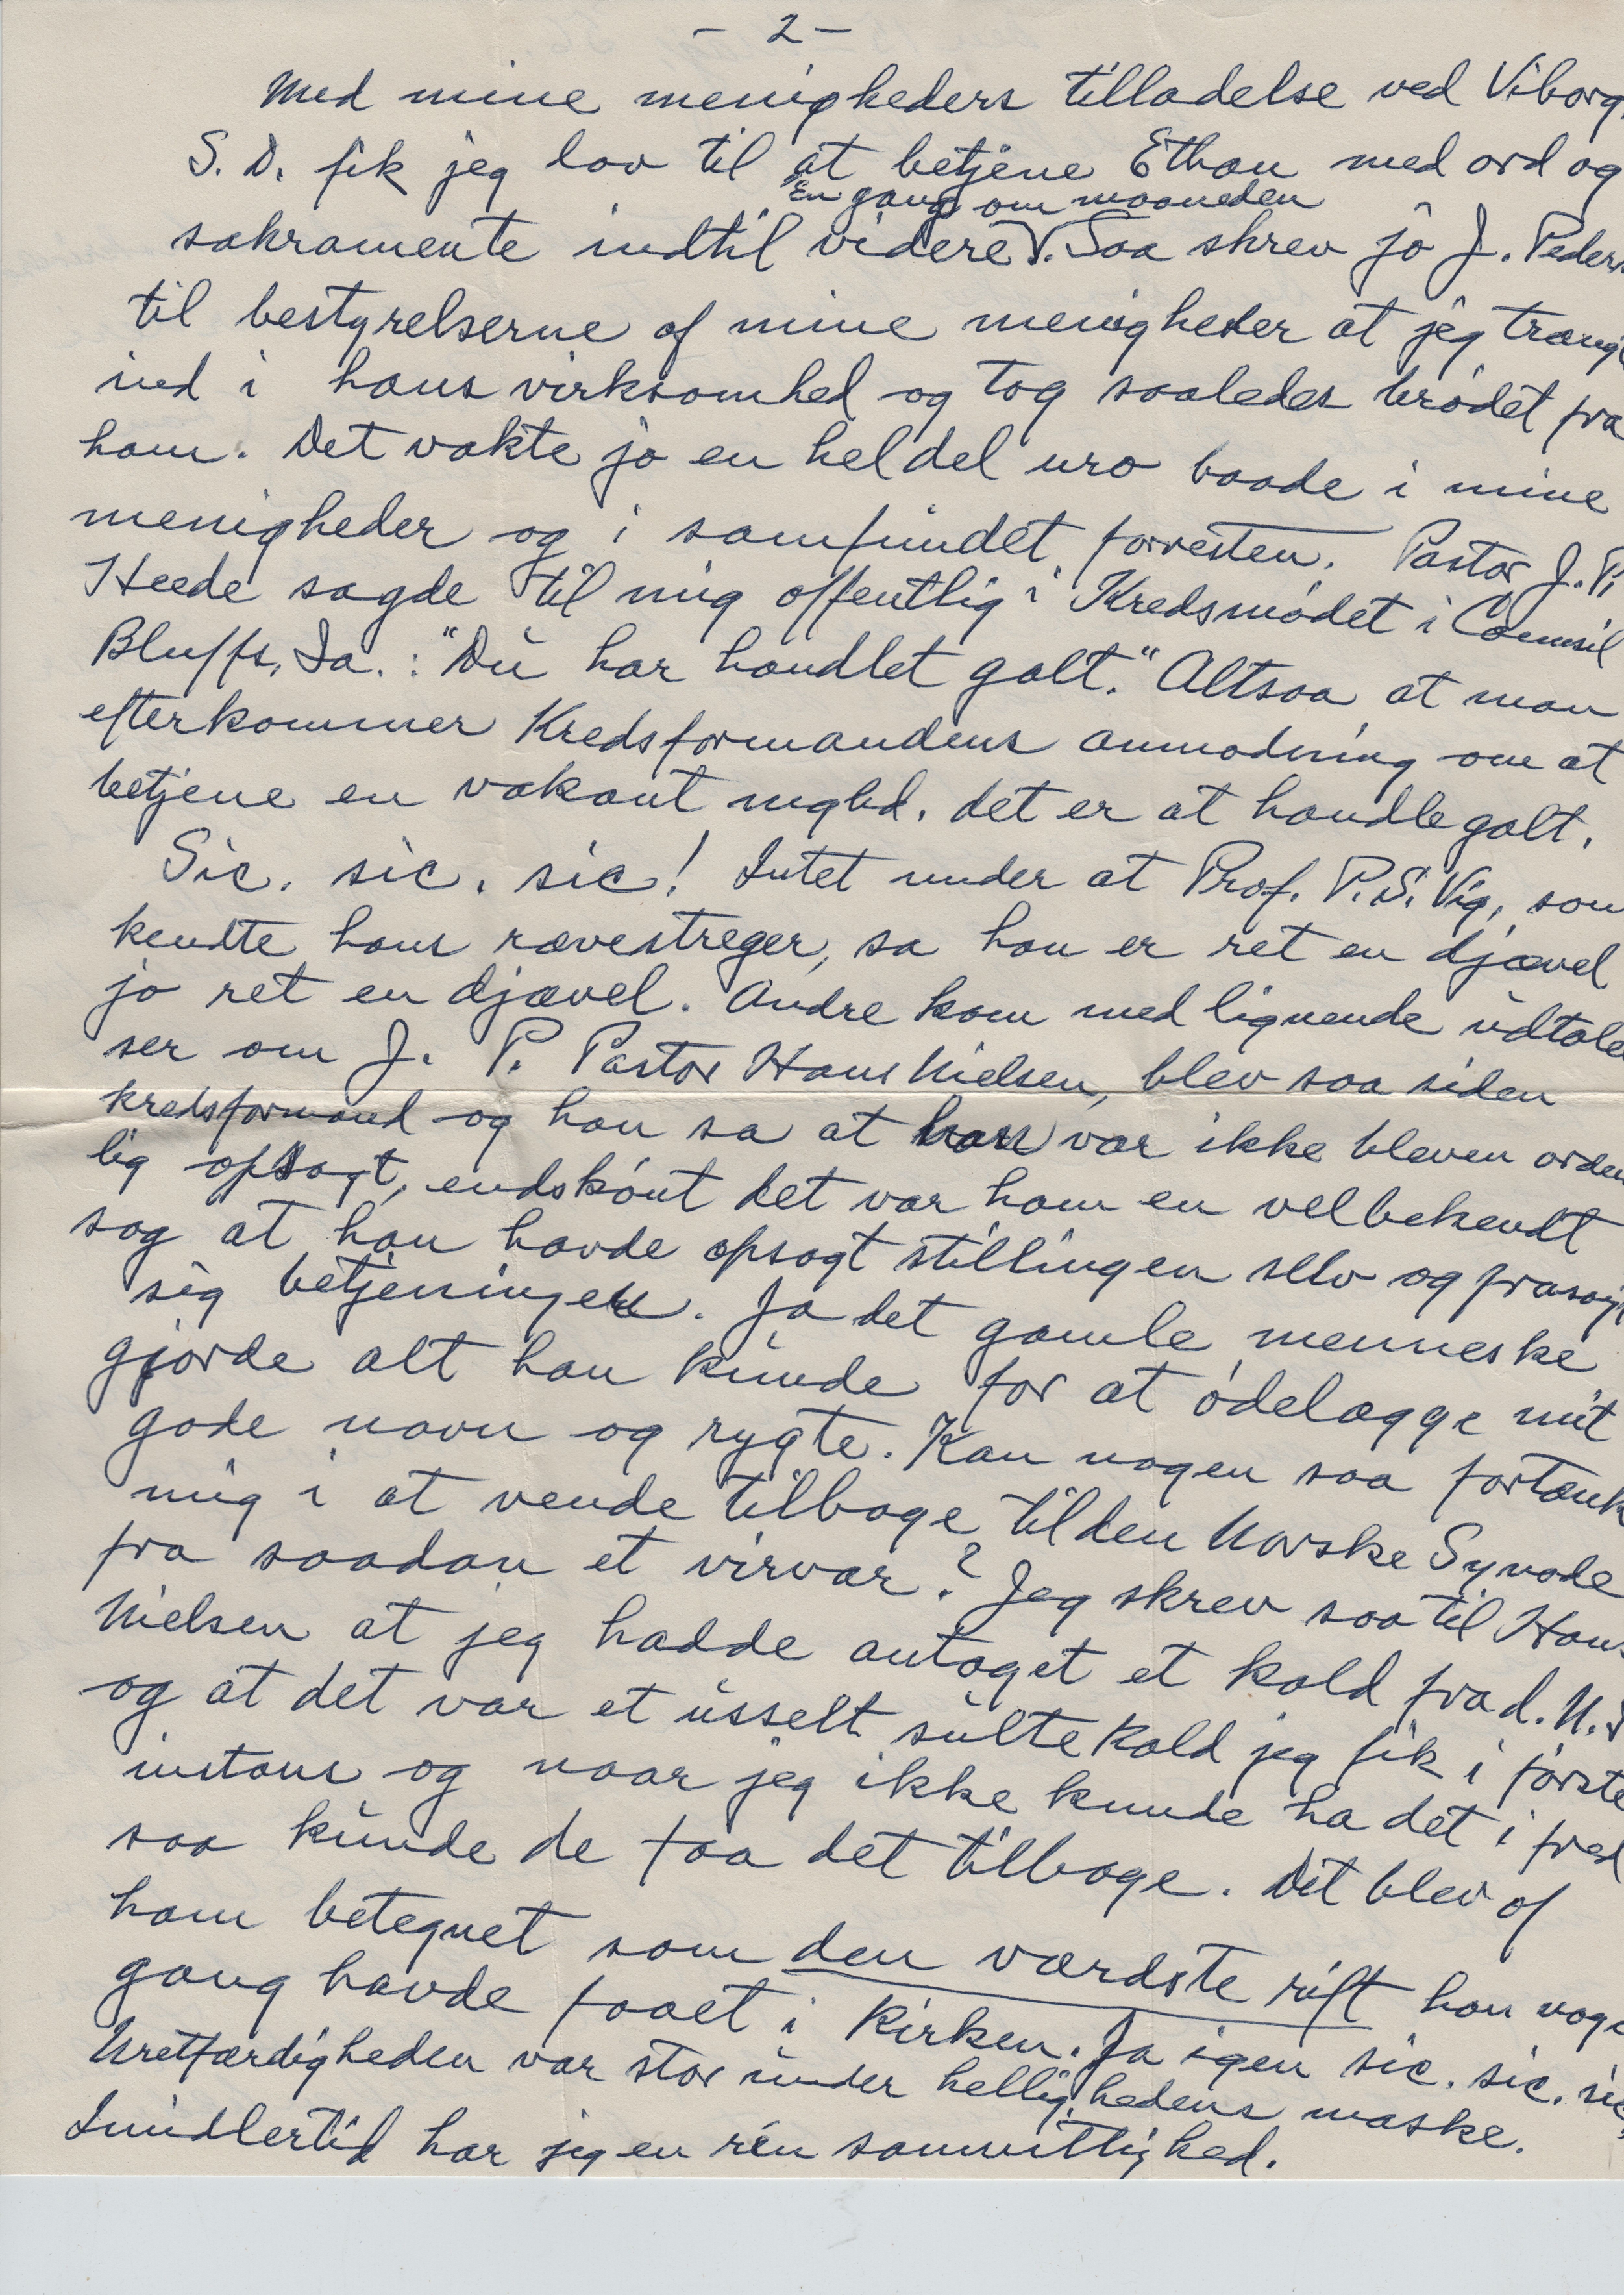 - 2 -
Med mine menigheders tilladelse ved Viborg,
S. D. fik jeg lov til at betjene Ethan med ord og
En gang om maaneden
sakramente indtil videre V. Saa skrev jo J. Peders
til bestyrelserne af mine menigheder at jeg trængt
ind i hans virksomhed og tog saaledes brødet fra
ham. Det vakte jo en hel del uro baade i mine
menigheder og i samfundet forresten. Pastor J. P.
Heede sagde til mig offentlig i Kredsmødet i Counsil
Bluffs, Ia.: "Du har handlet galt." Altsaa at man
efterkommer Kredsformandens anmodning om at
betjene en vakant mghd. det er at handle galt.
Sic. sic. sic! Intet under at Prof. P. S. Vig, som
kendte hans rævestreger, sa han er ret en djævel
jo ret en djævel. Andre kom med lignende udtalel
ser om J. P. Pastor Hans Nielsen, blev saa siden
kredsformand og han sa at han var ikke bleven orden
lig opsagt, endskönt det var ham en velbekendt
sag at han havde opsagt stillingen selv og frasagt
sig betjeningen. Ja det gamle menneske
gjorde alt han kunde for at ødelægge mit
gode navn og rygte. Kan nogen saa fortænk
mig i at vende tilbage til den Norske Synode
fra saadan et virvar? Jeg skrev saa til Hans
Nielsen at jeg hadde antaget et kald fra d. N. S
og at det var et usselt sulte Kald jeg fik i første
instans og naar jeg ikke kunde ha det i fred
saa kunde de faa det tilbage. Det blev af
ham betegnet som den værdste rift han noge
gang havde faaet i Kirken. Ja igen sic. sic. sic
Uretfærdigheden var stor under hellighedens maske.
Imidlertid har jeg en rén samvittighed.